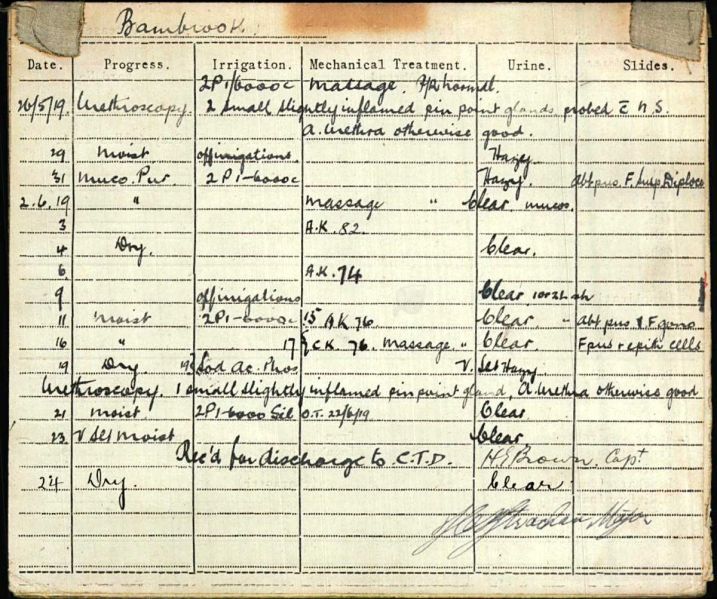 Bambrook.
Date. Progress. Irrigation. Mechanical Treatment. Urine. Slides.
2P1/6000c massage. P/R normal.
26/5/19. Urethroscopy. 2 small slightly inflamed pin point glands probed c̄ N.S.
A. Urethra otherwise good.
29 moist off irrigations. Hazy.
31 muco. Pur. 2P1-6000c Hazy. Abt pus. F. susp Diploco
2.6.19 " massage " Clear mucos.
3 A.K. 82.
4 Dry. Clear.
6 A.K. 74
9 off irrigations Clear 1 or 2 sh
11 moist 2P1-6000c 15 A K 76 Clear. " Abt pus V F gono
16 " 17 C.K. 76. massage. " Clear. F pus + epith cells
19 Dry 19 Sod Ac. Phos V. Slt Hazy.
Urethroscopy. 1 small slightly inflamed pin point gland, A. Urethra otherwise good
21 moist 2P1-6000 Sil O.T. 22/6/19 Clear
23 V Slt moist Clear
Rec'd for discharge to C.T.D. H S Brown. Capt
24 Dry. Clear
Major